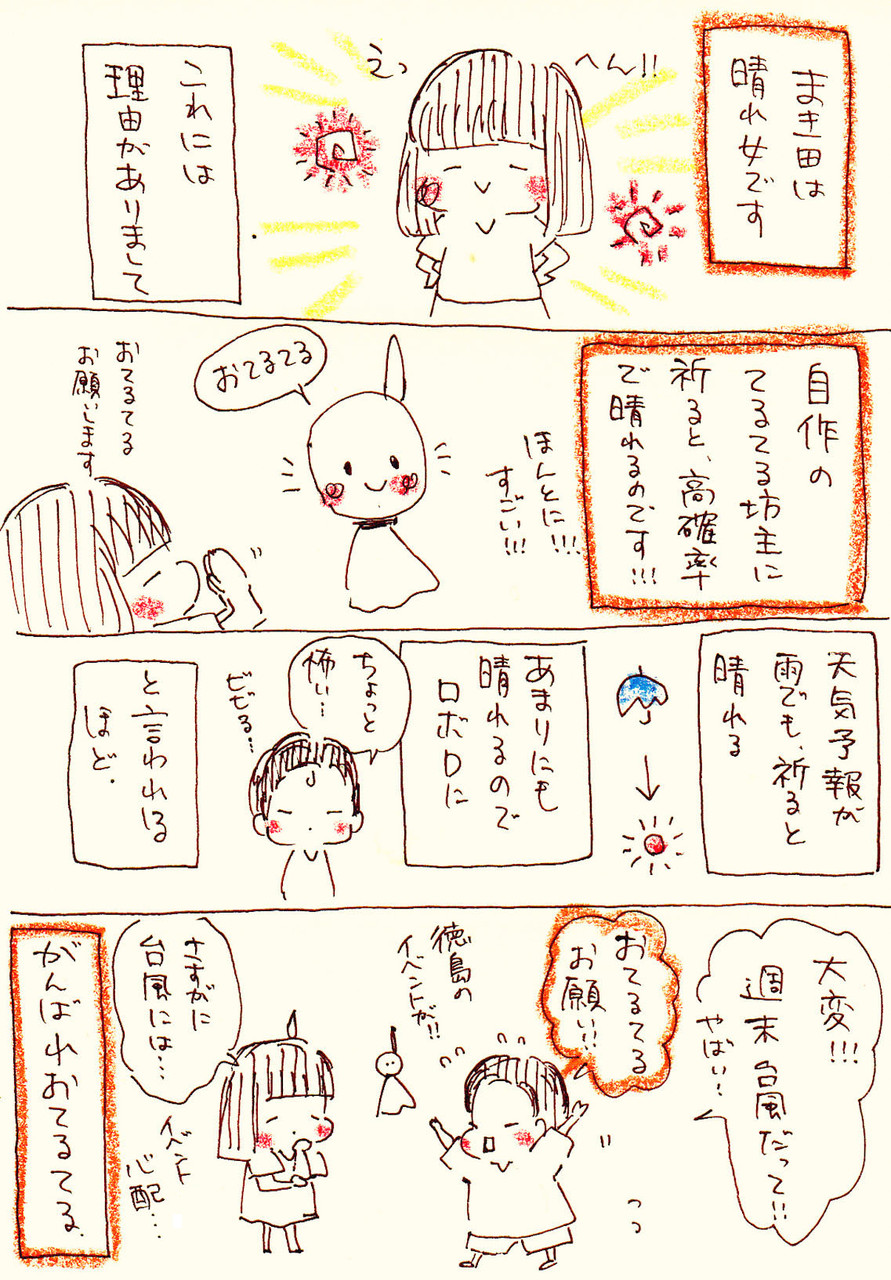 まき田は
晴れ女です
えっ
へん!!
これには
理由がありまして
自作の
てるてる坊主に
祈ると、高確率
で晴れるのです!!!
ほんとに!!!
すごい!!!
おてるてる
おてるてる
お願いします
天気予報が
雨でも、祈ると
晴れる
あまりにも
晴れるので
ロボロに
ちょっと
怖い…
ビビる…
と言われる
ほど.
大変!!!
週末台風だって!!
やばい!
おてるてる
お願い!!
徳島の
イベントが!!
さすがに
台風には…
イベント
心配…
がんばれおてるてる.